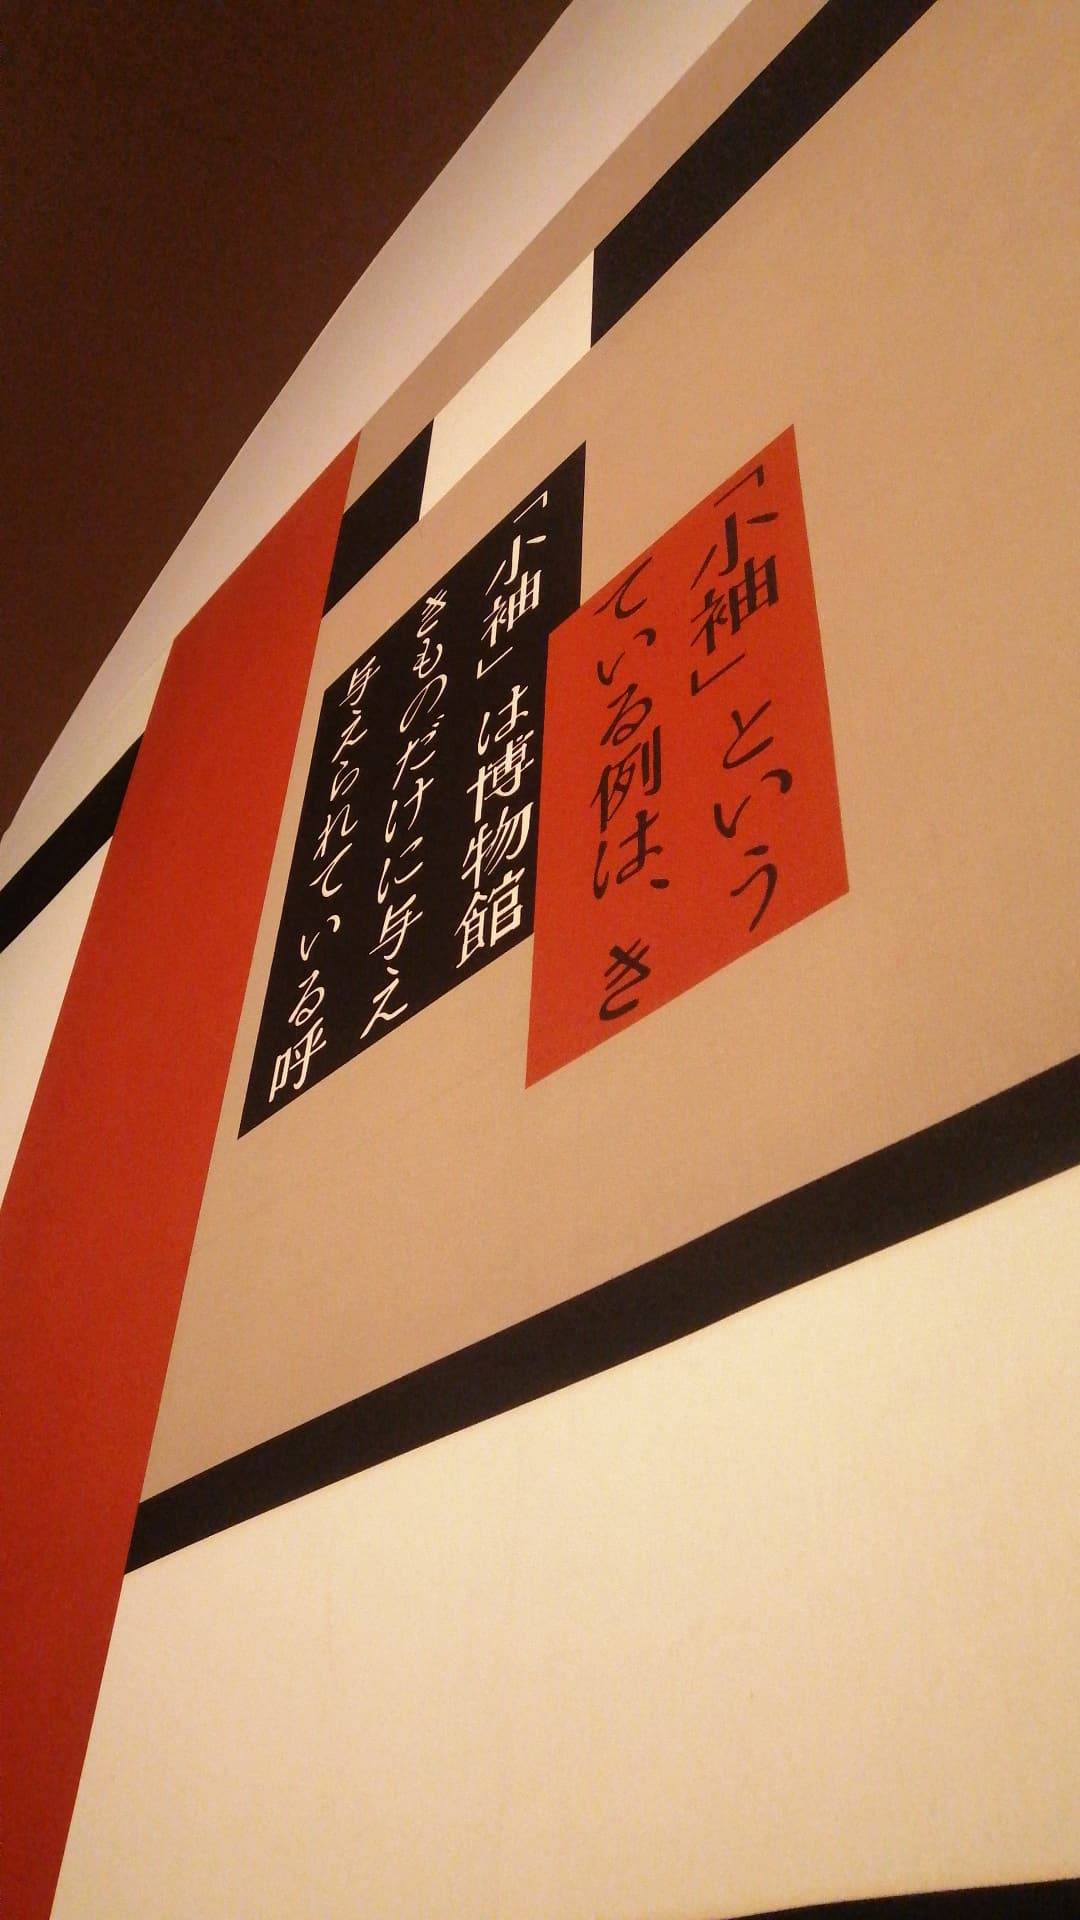 「小袖」という
ている例は、き
「小袖」は博物館
きものだけに与え
与えられている呼